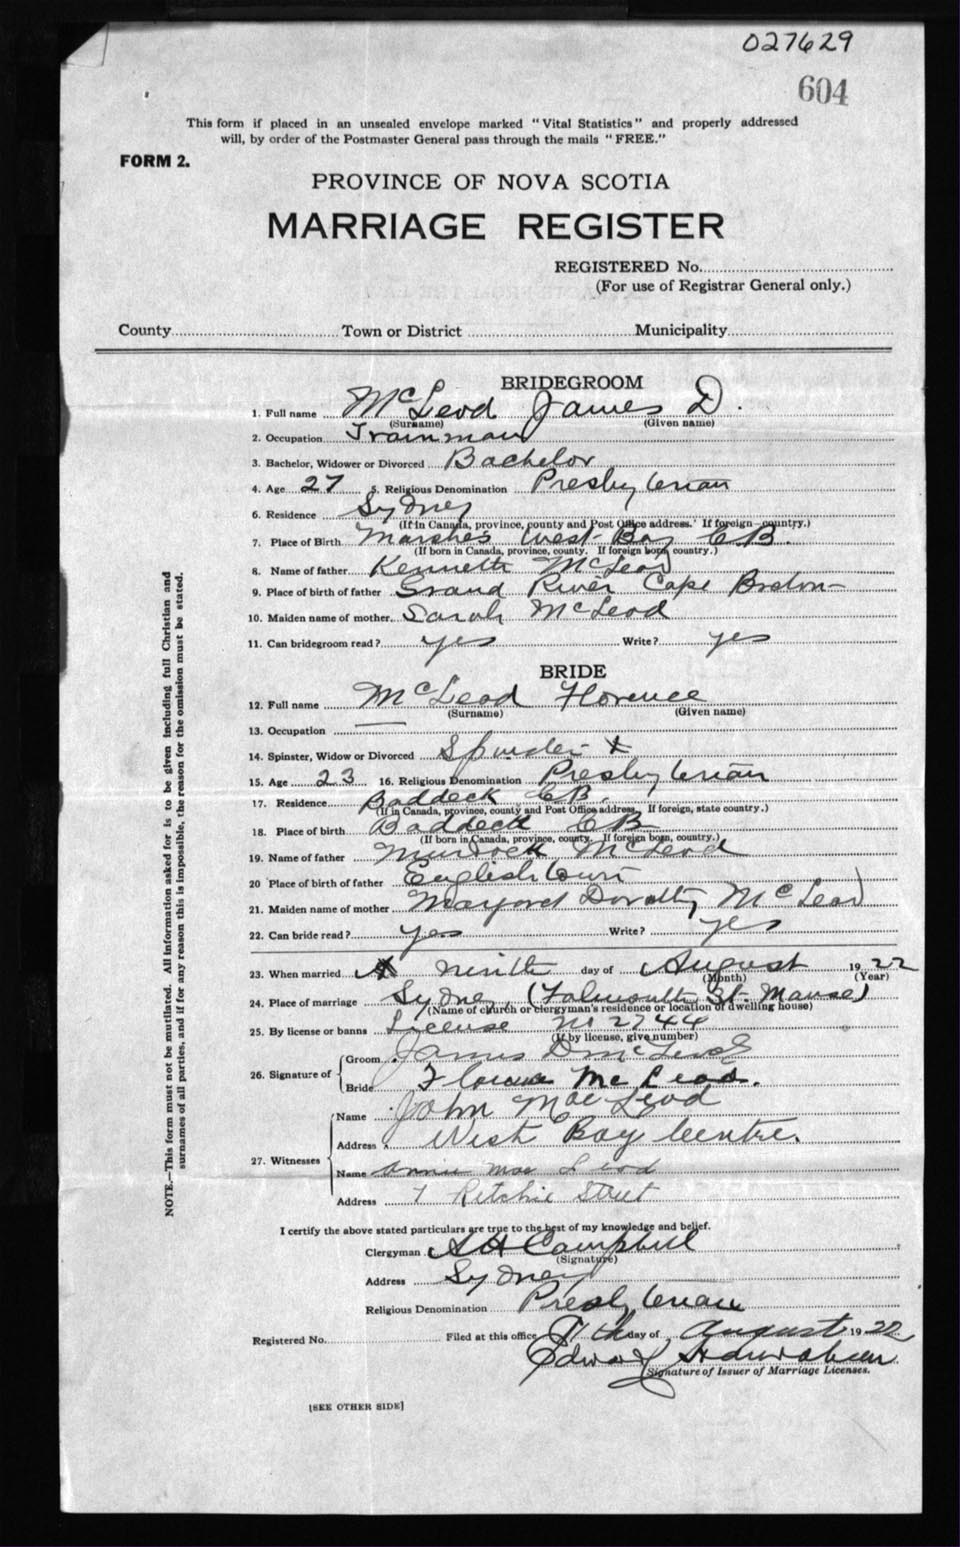 027629
604
This form if placed in an unsealed envelope marked "Vital Statistics" and properly addressed
will, by order of the Postmaster General pass through the mails "FREE."
FORM 2.
PROVINCE OF NOVA SCOTIA
MARRIAGE REGISTER
REGISTERED No.
(For use of Registrar General only.)
County Town or District Municipality
BRIDEGROOM
1. Full name McLeod James D.
(Surname) (Given name)
2. Occupation Trainman
3. Bachelor, Widower or Divorced Bachelor
4. Age 27 5. Religious Denomination Presbyterian
6. Residence Sydney
(If in Canada, province, county and Post Office address. If foreign—country.)
7. Place of Birth Marshes West Bay C.B.
(If born in Canada, province, county. If foreign born, country.)
8. Name of father Kenneth McLeod
9. Place of birth of father Grand River Cape Breton
10. Maiden name of mother Sarah McLeod
11. Can bridegroom read? yes Write? yes
BRIDE
12. Full name McLeod Florence
(Surname) (Given name)
13. Occupation —
14. Spinster, Widow or Divorced
15. Age 23 16. Religious Denomination Presbyterian
17. Residence Baddeck C.B.
(If in Canada, province, county and Post Office address. If foreign, state country.)
18. Place of birth Baddeck CB
(If born in Canada, province, county. If foreign born, country.)
19. Name of father Murdock McLeod
20 Place of birth of father Englishtown
21. Maiden name of mother Margaret Dorothy McLeod
22. Can bride read? yes Write? yes
23. When married ninth day of August 1922
(Month) (Year)
24. Place of marriage Sydney, (Falmouth St. Manse)
(Name of church or clergyman's residence or location of dwelling house)
25. By license or banns License No 2744
(If by license, give number)
26. Signature of Groom James D McLeod
Bride Florence McLeod.
27. Witnesses Name John MacLeod
Address West Bay Centre.
Name Annie MacLeod
Address 7 Ritchie Street
I certify the above stated particulars are true to the best of my knowledge and belief.
Clergyman A H Campbell
(Signature)
Address Sydney
Religious Denomination Presbyterian
Registered No. Filed at this office day of August 1922
Edward
Signature of Issuer of Marriage Licenses.
[SEE OTHER SIDE]
NOTE.—This form must not be mutilated. All information asked for is to be given including full Christian and
surnames of all parties, and if for any reason this is impossible, the reason for the omission must be stated.